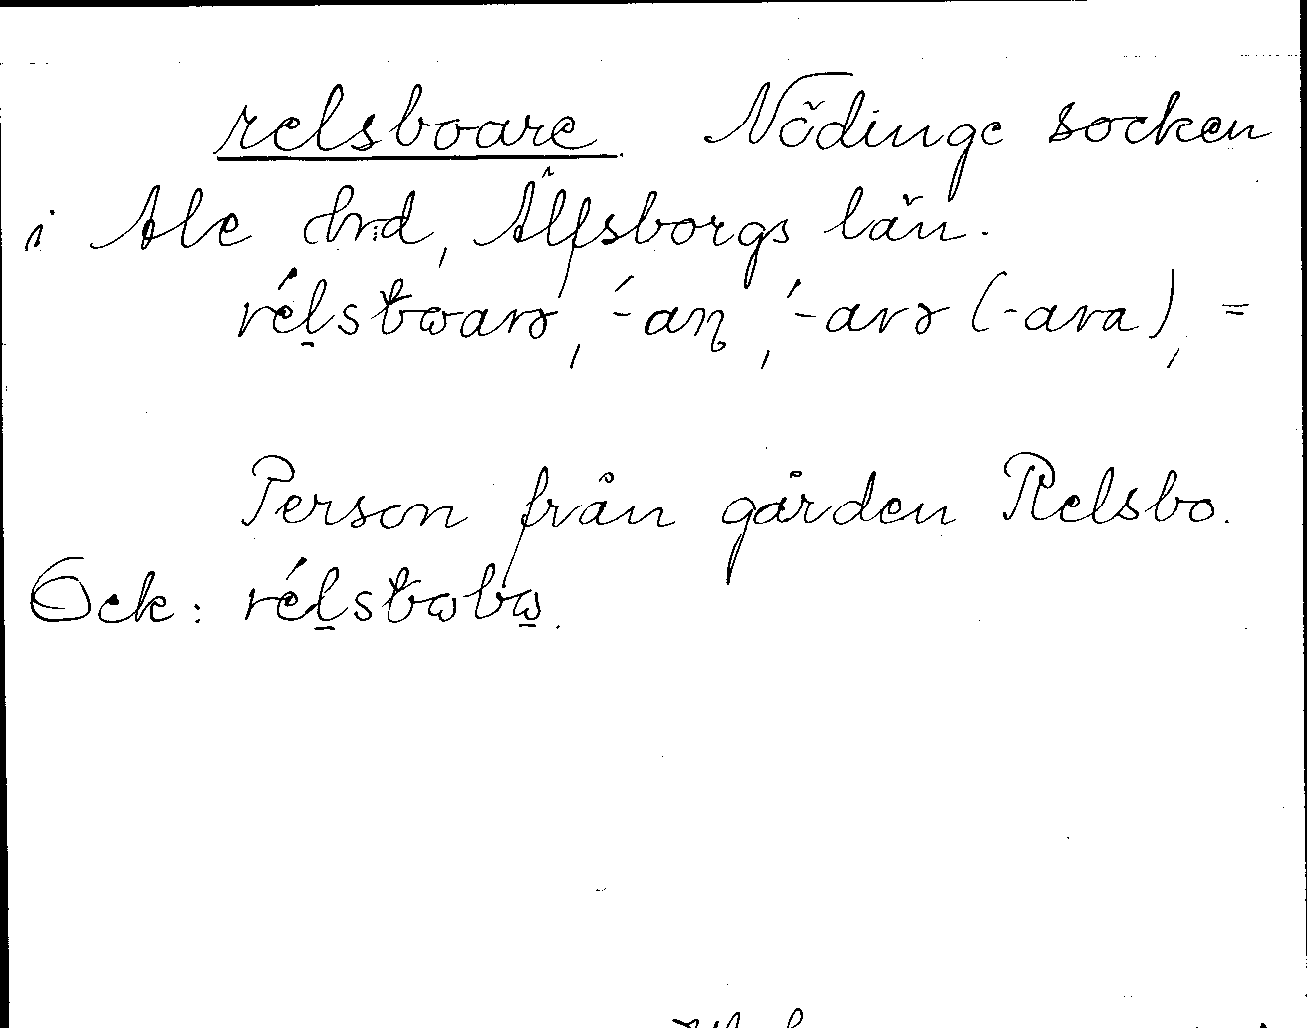 relsboare. Nödinge socken
i Ale hrd, Älfsborgs län.
rélsbωarə, ´-aɳ, ´-arə (-ara), =
Person från gården Relsbo.
Ock: rélsbωbω.